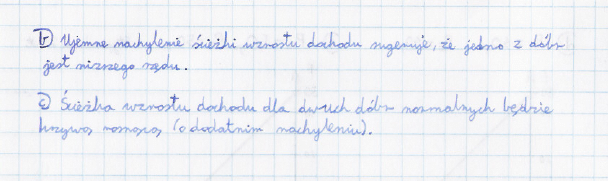 b) Ujemne nachylenie ścieżki wzrostu dochodu sugeruje, że jedno z dóbr
jest niższego rzędu.
c) Ścieżka wzrostu dochodu dla dwuch dóbr normalnych będzie
krzywą rosnącą (o dodatnim nachyleniu).